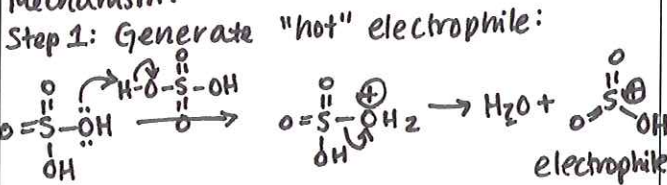 Mechanism:
Step 1: Generate "hot" electrophile:
O=S(=O)(OH)-ÖH H-O-S(=O)(=O)-OH → O=S(=O)(OH)-O⊕H2 → H2O + O=S⊕(=O)-OH
electrophile